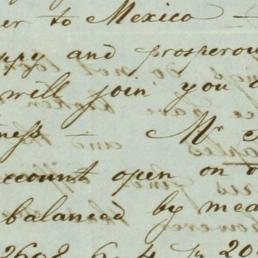 er to Mexico -
ppy and prosperou
will join you
ness - Mr
ccount open on
balanced by mea
2608 6 4 In 20